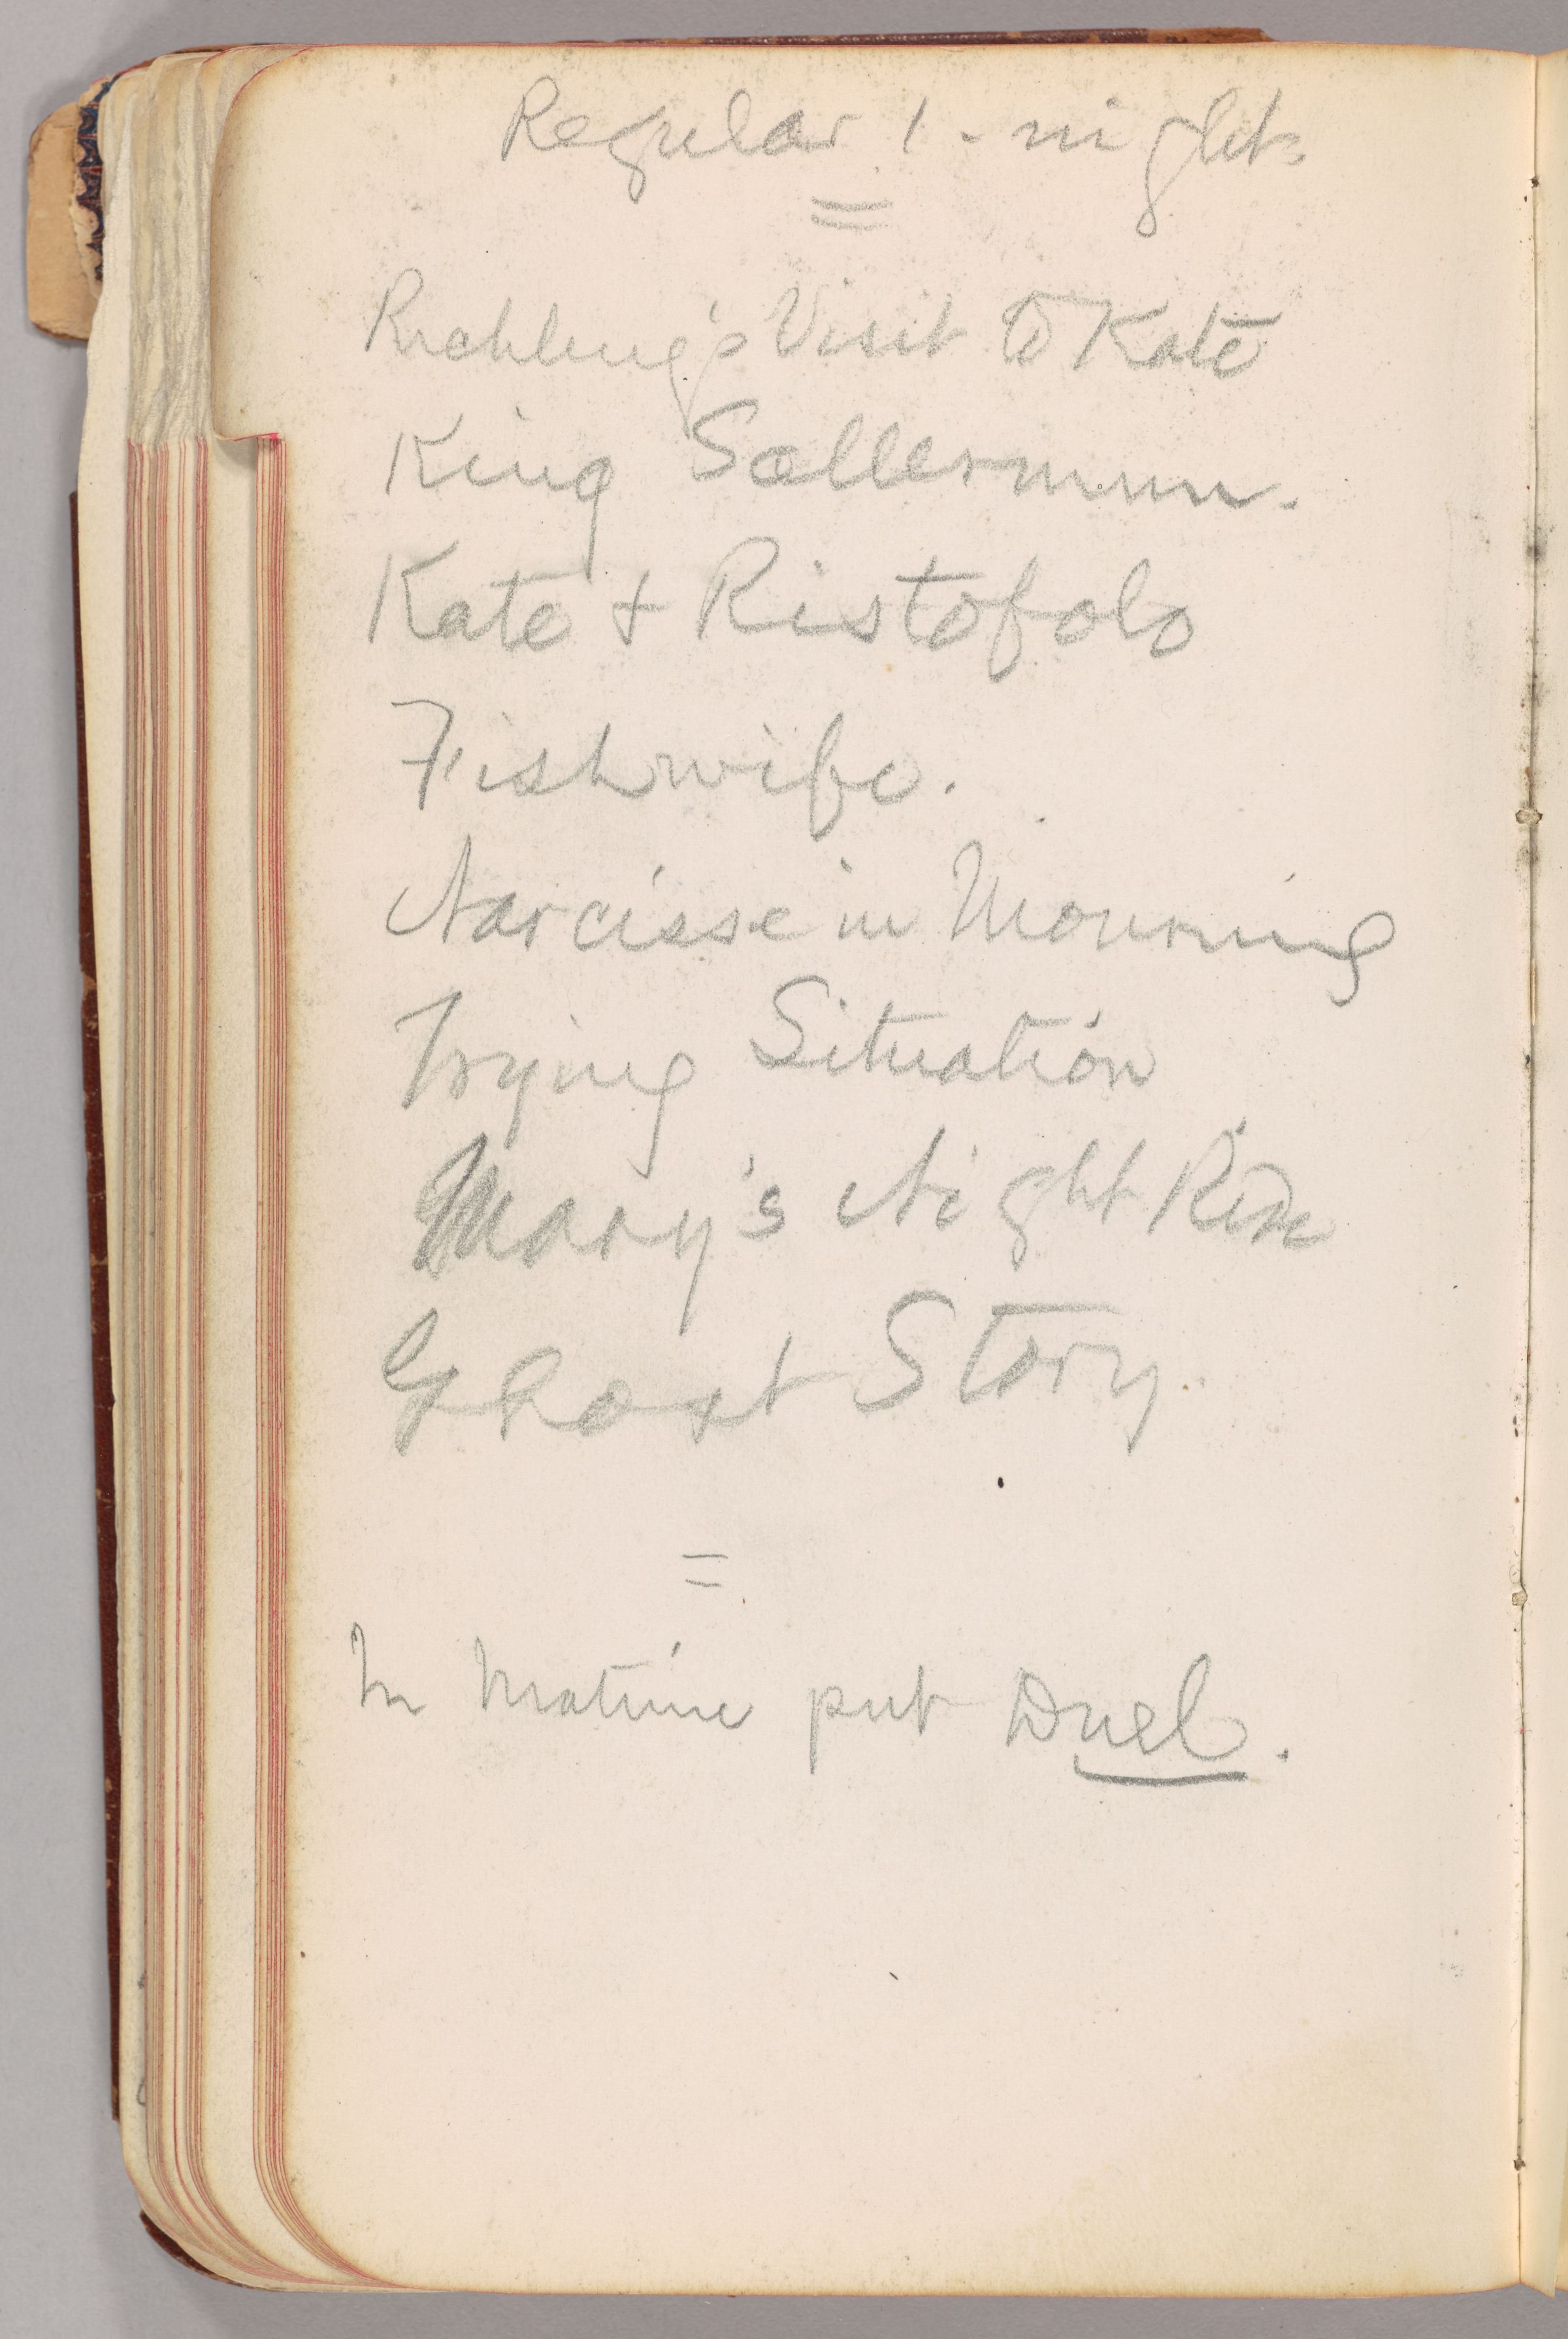 Regular 1-night.
Richling's Visit to Kate
King Sollermunn.
Kate + Ristofolo
Fishwife.
Narcisse in Mourning
Trying Situation
Mary's Night Ride
Ghost Story.
In Matinee put Duel.